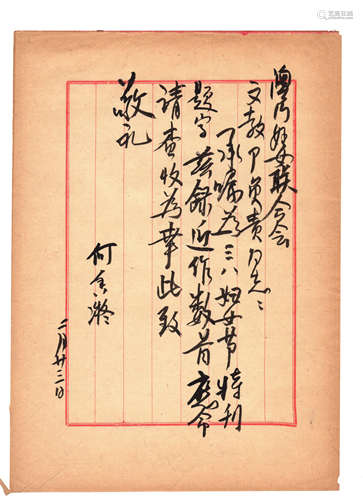 澳门妇女联合会
文教部负责同志:
承嘱为三八妇女节特刊
题字兹录近作数首应命
请查收为幸此致
敬礼
何香凝
二月廿二日